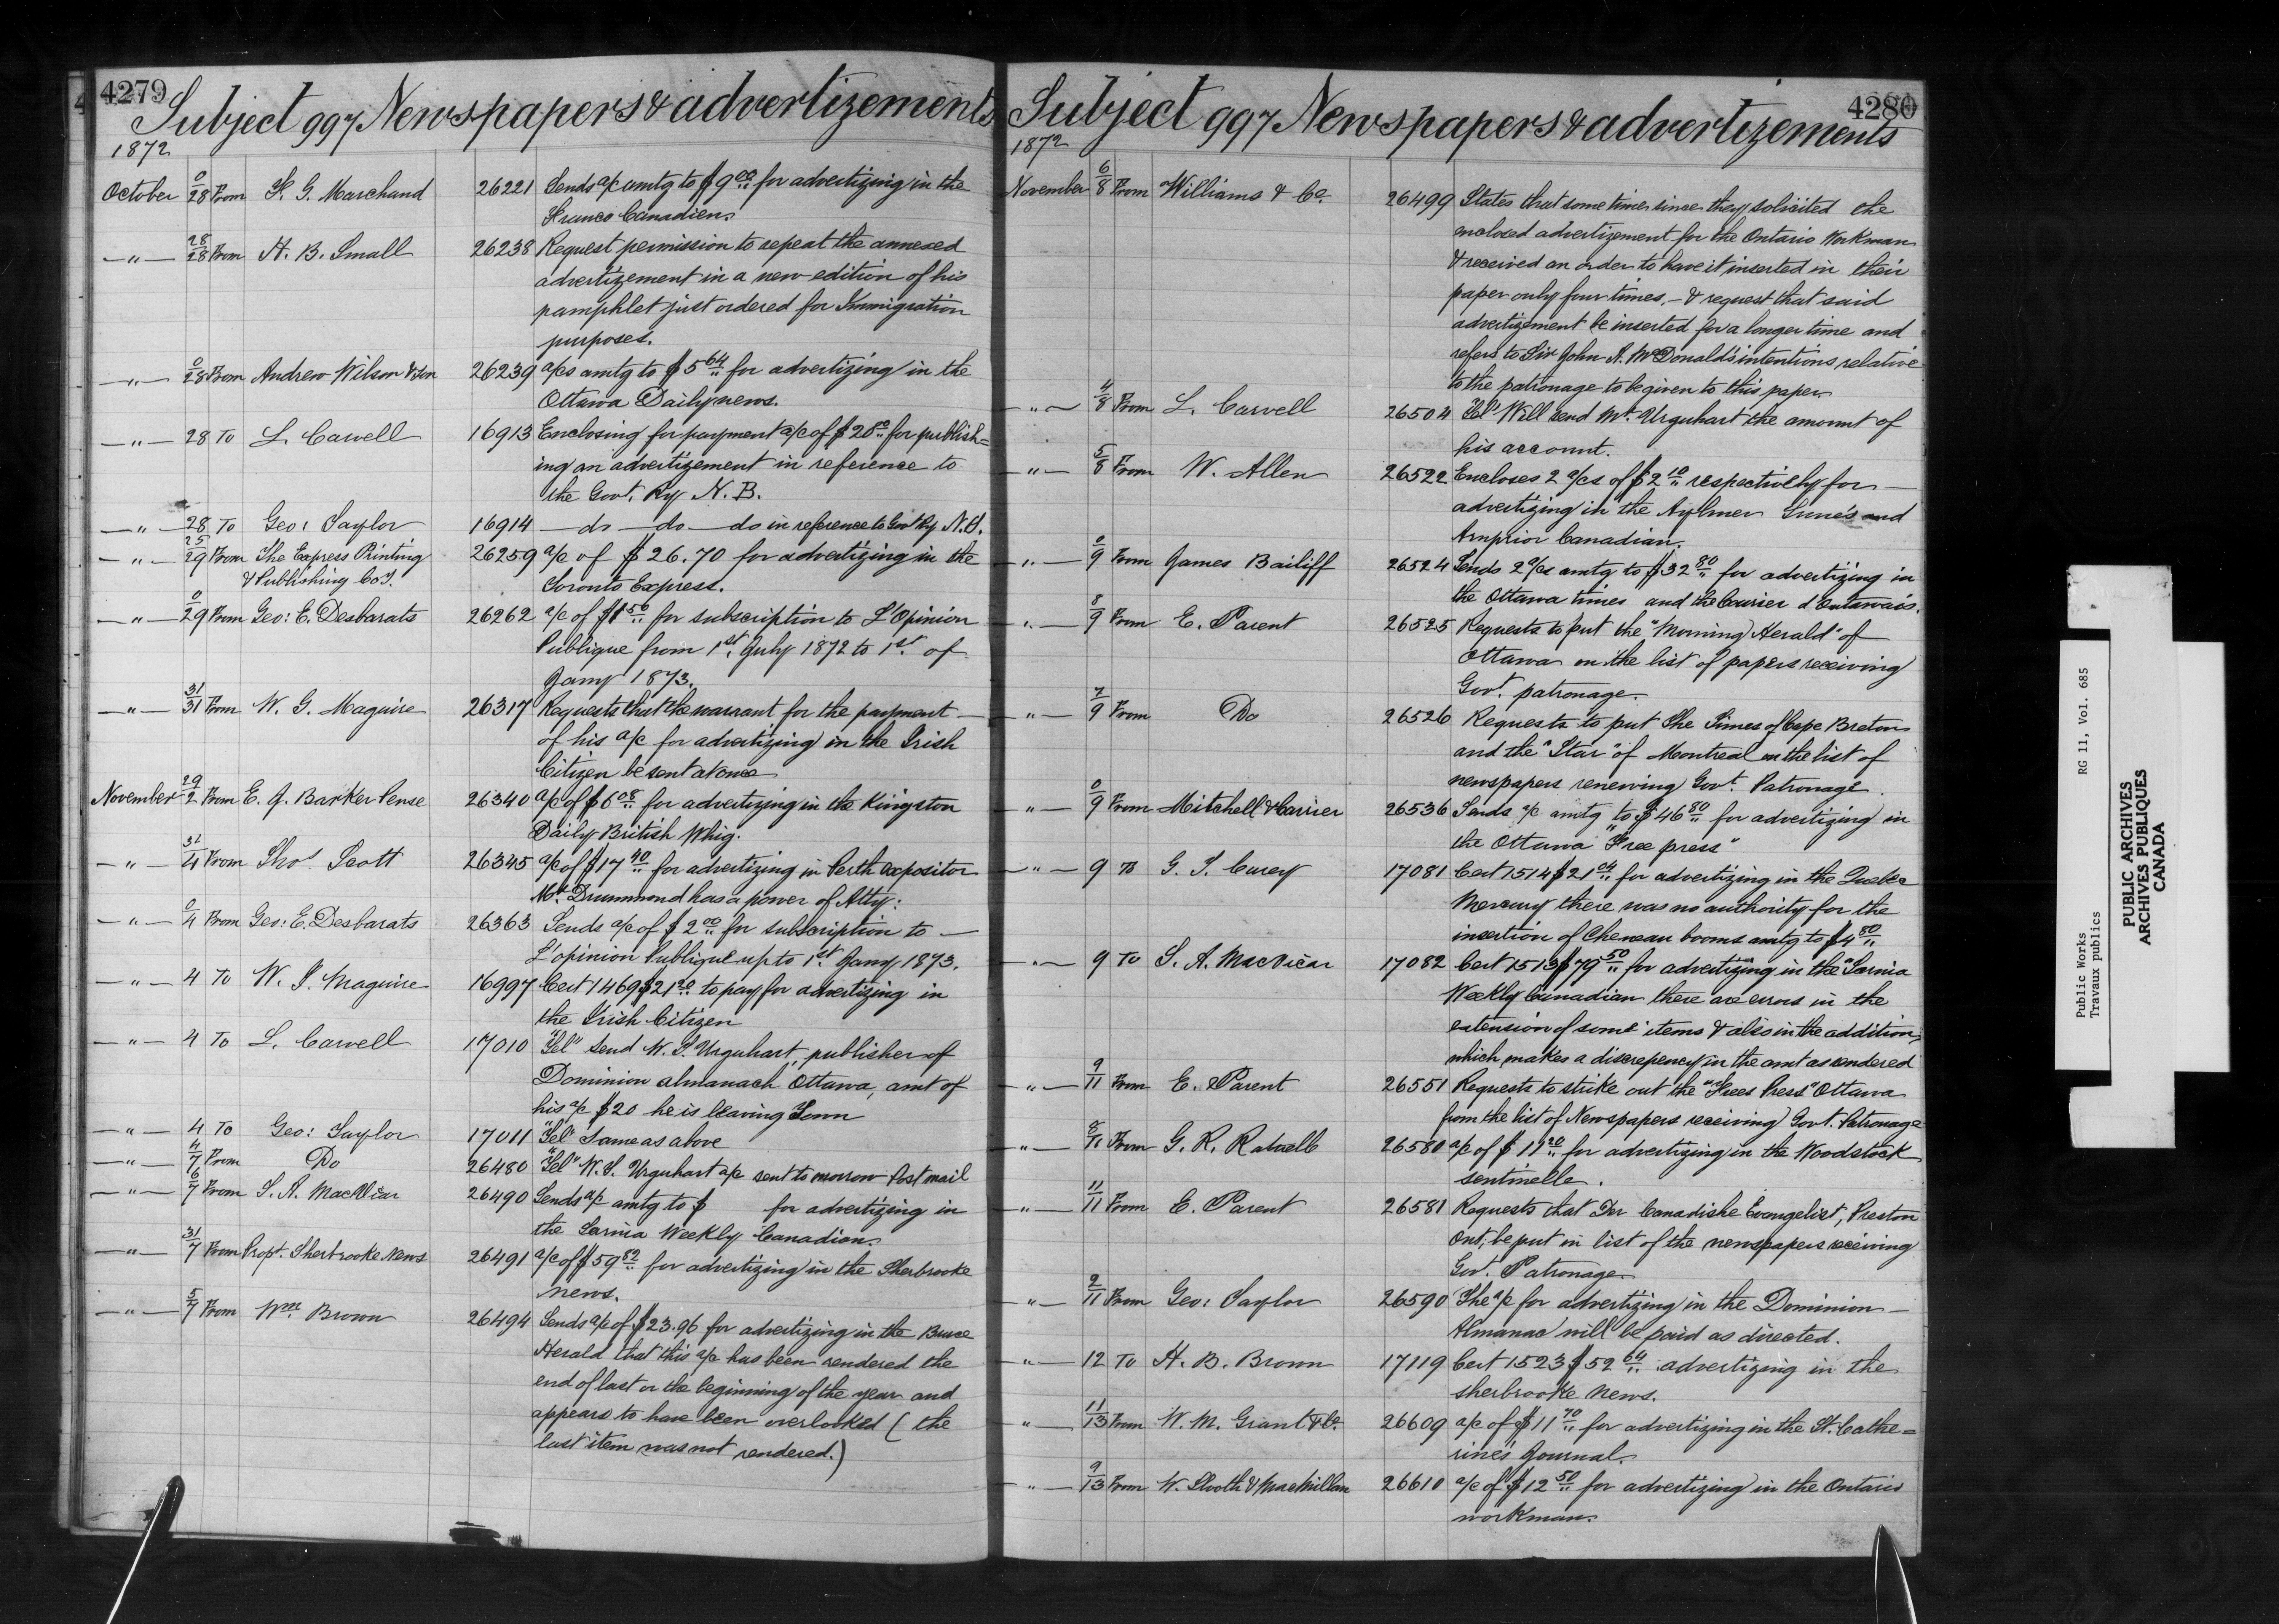 4279
Subject 997 Newspapers & advertizements
1872
October 0/28 From F. G. Marchand 26221 Sends a/c amtg to $9 00 for advertizing in the
Franco Canadien.
—"— 28/28 From H. B. Small 26238 Request permission to repeat the annexed
advertizement in a new edition of his
pamphlet just ordered for Immigration
purposes.
—"— 0/28 From Andrew Wilson & Son 26239 a/cs amtg to $5 64 for advertizing in the
Ottawa Daily news.
—"— 28 To L. Carvell 16913 Enclosing for payment a/c of $20 00 for publish=
ing an advertizement in reference to
the Govt. Ry N. B.
—"— 28 To Geo: Taylor 16914 — do — do — do in reference to Govt Ry N.S.
—"— 25/29 From The Express Printing 26259 a/c of $26.70 for advertizing in the
& Publishing Coy. Toronto Express.
—"— 0/29 From Geo: E. Desbarats 26262 a/c of $1 50 for subscription to L'Opinion
Publique from 1st. July 1872 to 1st. of
Jany 1873.
—"— 31/31 From W. G. Maguire 26317 Requests that the warrant for the payment —
of his a/c for advertizing in the Irish
Citizen be sent at once
November 29/2 From E. J. Barker Pense 26340 a/c of $6 08 for advertizing in the Kingston
Daily British Whig.
—"— 31/4 From Thos Scott 26345 a/c of $17 40 for advertizing in Perth expositor
Mr. Drummond has a power of Atty:
—"— 0/4 From Geo: E. Desbarats 26363 Sends a/c of $2 00 for subscription to —
L'opinion Publique up to 1st. Jany 1873.
—"— 4 To W. J. Maguire 16997 Cert 1469 $21 20 to pay for advertizing in
the Irish Citizen
—"— 4 To L. Carvell 17010 "Tel" Send W. T. Urquhart, publisher of
Dominion almanach Ottawa, amt of
his a/c $20 he is leaving Town
—"— 4 To Geo: Taylor 17011 "Tel" Same as above
—"— 4/7 From Do 26480 "Tel" W. T. Urquhart a/c sent to morrow Post mail
—"— 6/7 From T. A. MacVicar 26490 Sends a/c amtg to $ for advertizing in
the Sarnia Weekly Canadian.
—"— 31/7 From Propt. Sherbrooke News 26491 a/c of $59 82 for advertizing in the Sherbrooke
News.
—"— 5/7 From Wm. Brown 26494 Sends a/c of $23.96 for advertizing in the Bruce
Herald that this a/c has been rendered the
end of last or the beginning of the year and
appears to have been overlooked (the
last item was not rendered.)
4280
Subject 997 Newspapers & advertizements
1872
November 6/8 From Williams & Co. 26499 States that some time since they solicited the
enclosed advertizement for the Ontario Workman
& received an order to have it inserted in their
paper only four times, — & request that said
advertizement be inserted for a longer time and
refers to Sir John A. McDonald's intentions relative
to the patronage to be given to this paper
—"— 4/8 From L. Carvell 26504 "Tel" Will send Mr. Urquhart the amount of
his account.
—"— 5/8 From W. Allen 26522 Encloses 2 a/cs of $2 10 respectively for —
advertizing in the Aylmer Times and
Arnprior Canadian.
—"— 0/9 From James Bailiff 26524 Sends 2 a/cs amtg to $32 80 for advertizing in
the Ottawa times and the Courier d'Outaouais.
—"— 8/9 From E. Parent 26525 Requests to put the "Morning Herald" of
Ottawa on the list of papers receiving
Govt. patronage.
—"— 7/9 From Do 26526 Requests to put The Times of Cape Breton
and the "Star" of Montreal on the list of
newspapers renewing Govt. Patronage.
—"— 0/9 From Mitchell & Carrier 26536 Sends a/c amtg to $46 80 for advertizing in
the Ottawa "Free press"
—"— 9 To G. T. Carey 17081 Cert 1514 $21 04 for advertizing in the Quebec
Mercury there was no authority for the
insertion of Cheneau booms amtg to $4 80
—"— 9 To T. A. MacVicar 17082 Cert 1513 $79 50 for advertizing in the "Sarnia
Weekly Canadian there are errors in the
extension of some items & also in the addition,
which makes a discrepency in the amt as rendered
—"— 9/11 From E. Parent 26551 Requests to strike out the "Free Press" Ottawa
from the list of Newspapers receiving Govt. Patronage
—"— 8/11 From G. R. 26580 a/c of $11 20 for advertizing in the Woodstock
sentinelle.
—"— 11/11 From E. Parent 26581 Requests that Der Canadishe Evangelist, Preston
Ont; be put in list of the newspapers receiving
Govt. Patronage.
—"— 2/11 From Geo: Taylor 26590 The a/c for advertizing in the Dominion —
Almanac will be paid as directed.
—"— 12 To H. B. Brown 17119 Cert 1523 $52 64 advertizing in the
Sherbrooke News.
—"— 11/13 From W. M. Grant & Co. 26609 a/c of $11 70 for advertizing in the St. Cathe=
rine's Journal.
—"— 9/13 From W. & MacMillan 26610 a/c of $12 50 for advertizing in the Ontario
workman.
Public Works RG 11, Vol. 685
Travaux publics
PUBLIC ARCHIVES
ARCHIVES PUBLIQUES
CANADA